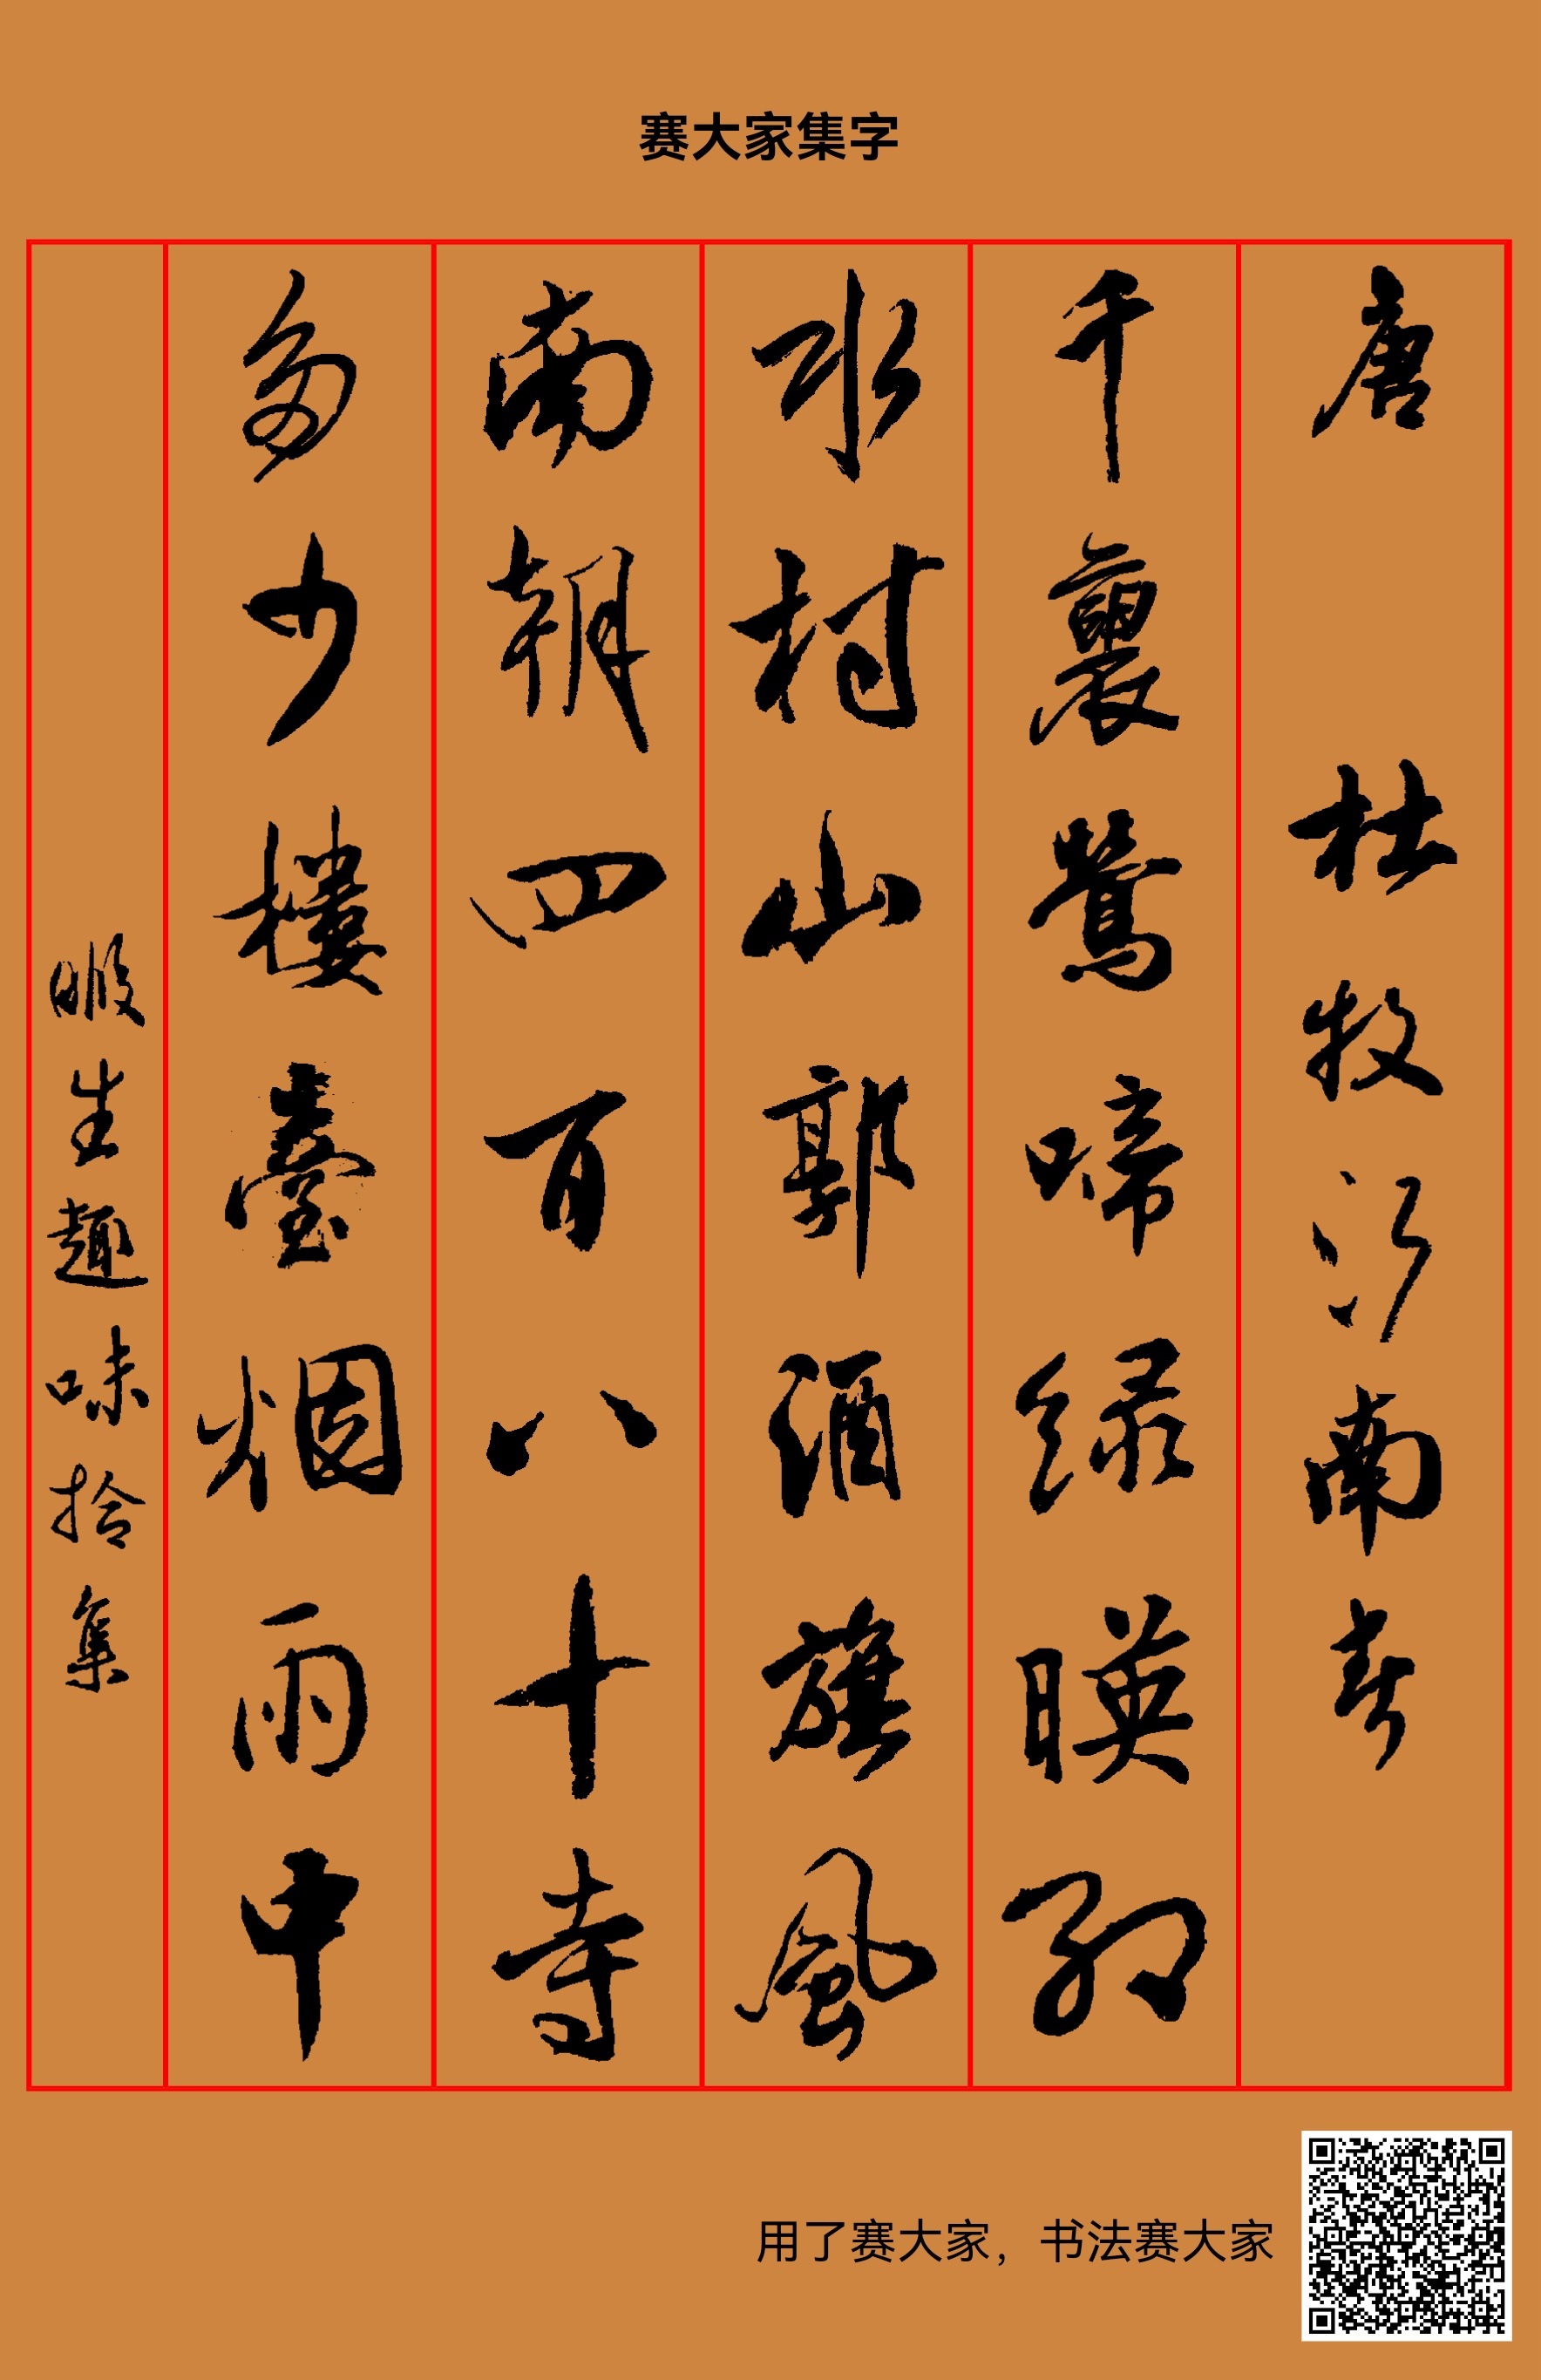 赛大家集字
唐 杜牧江南春
千裏鶯啼绿暎紅
水村山郭酒旗風
南朝四百八十寺
多少樓臺烟雨中
暇生趣味拾集
用了赛大家，书法赛大家